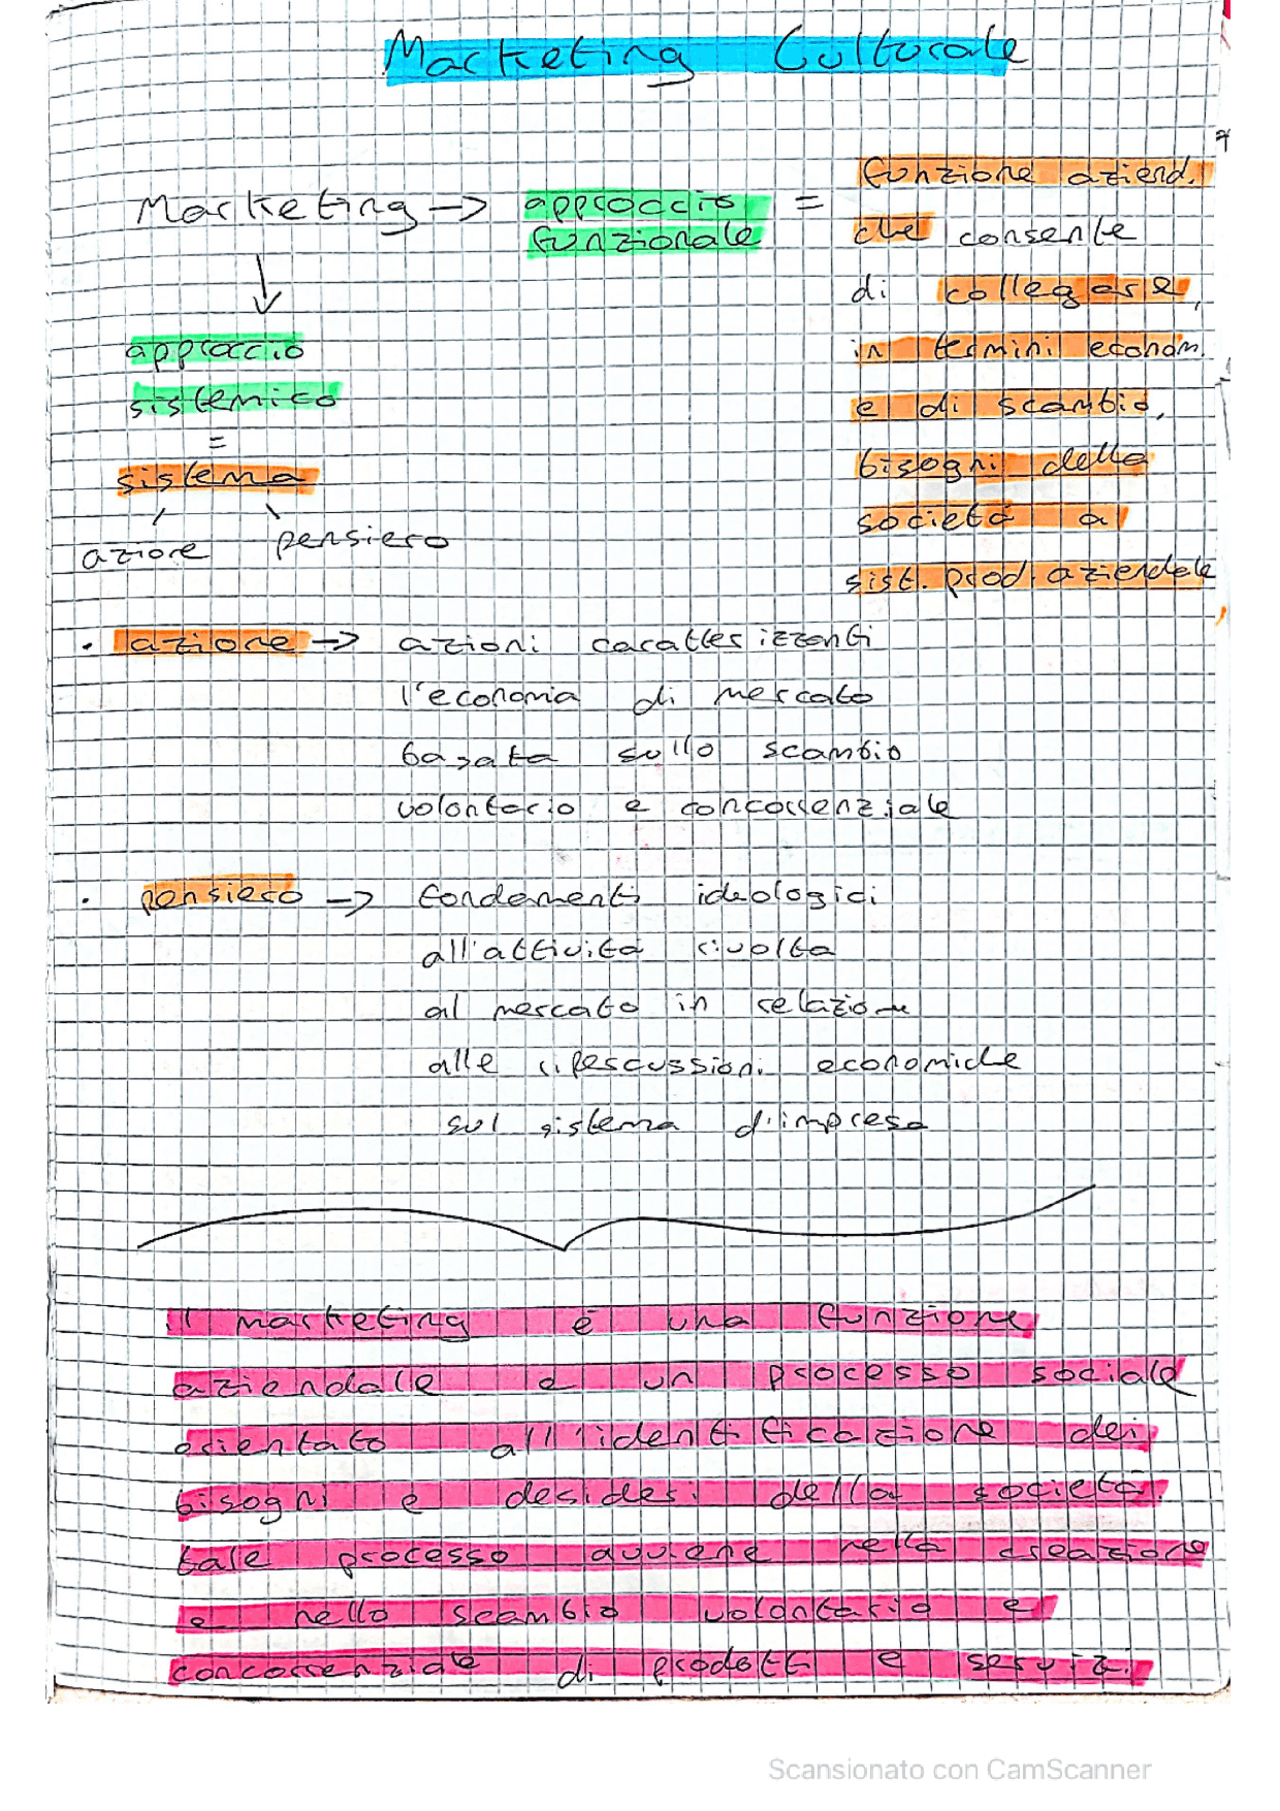 Marketing Culturale
Marketing -> approccio funzionale =
funzione aziend.
che consente
di collegare,
in termini econom.
e di scambio,
bisogni della
società a
sist. prod. aziendale
approccio
sistemico
=
sistema
azione pensiero
• azione -> azioni caratterizzanti
l'economia di mercato
basata sullo scambio
volontario e concorrenziale
• pensiero -> fondamenti ideologici
all'attività rivolta
al mercato in relazione
alle ripercussioni economiche
sul sistema d'impresa
Il marketing è una funzione
aziendale e un processo sociale
orientato all'identificazione dei
bisogni e desideri della società
tale processo avviene nella creazione
e nello scambio volontario e
concorrenziale di prodotti e servizi.
Scansionato con CamScanner